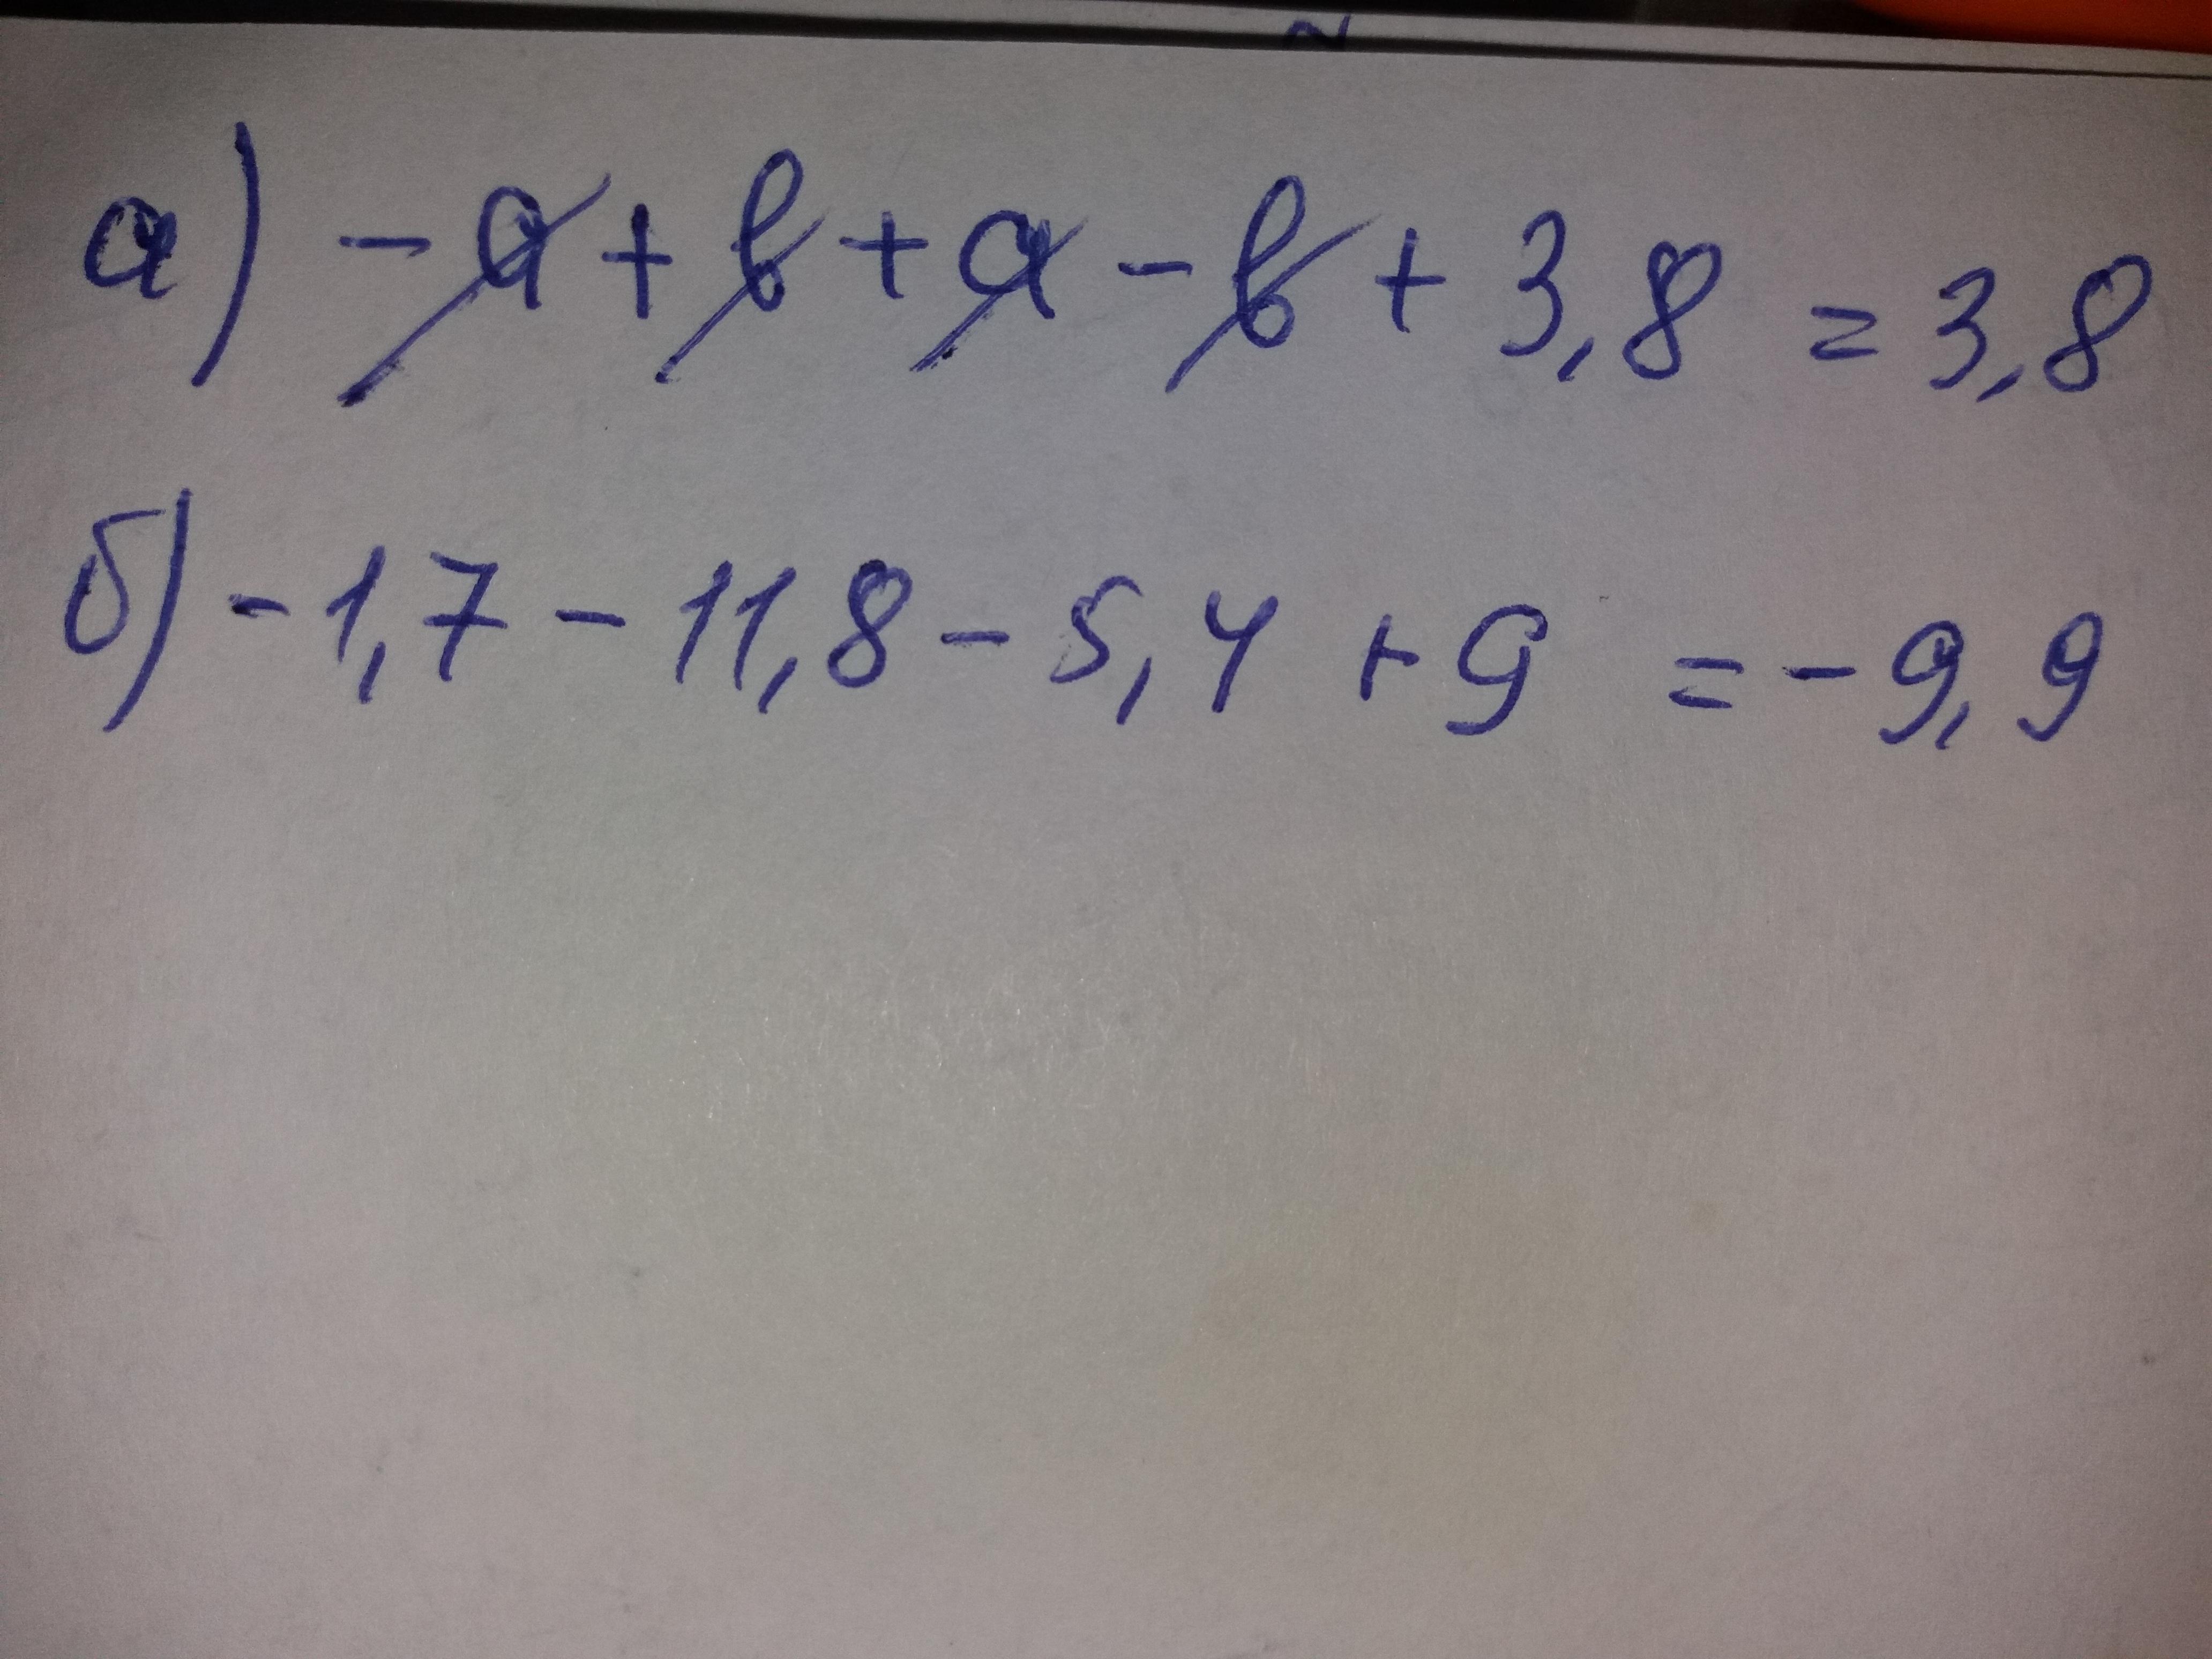 а) - a + b + a - b + 3,8 = 3,8
б) - 1,7 - 11,8 - 5,4 + 9 = - 9,9